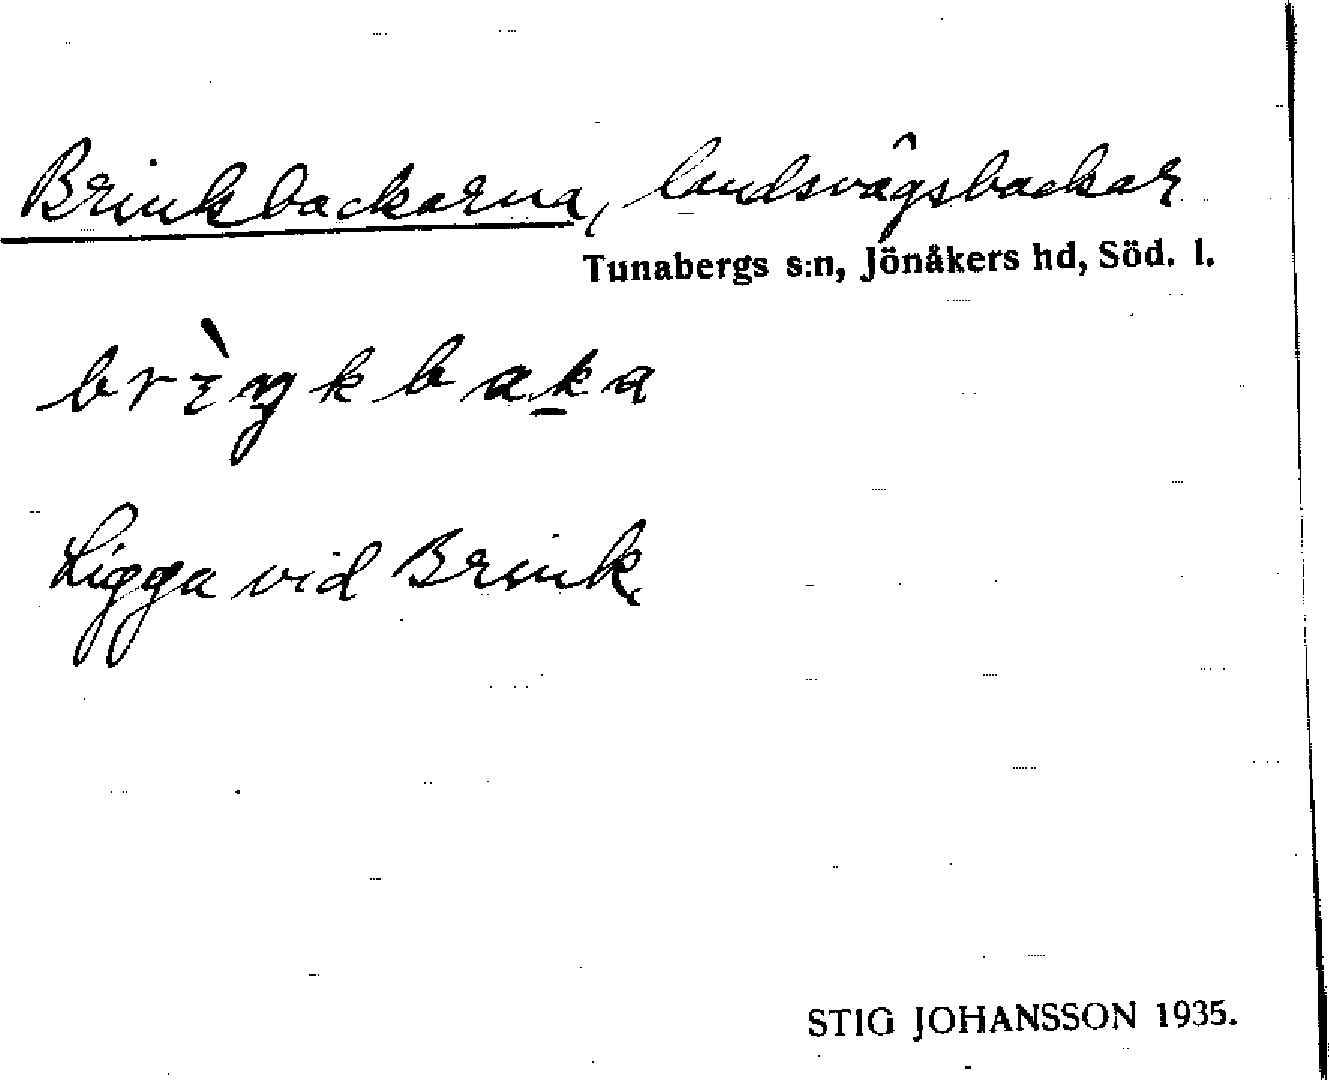 Brinkbackarna, landsvägsbackar
Tunabergs s:n, Jönåkers hd, Söd. l.
brìŋkbaka
Ligga vid Brink.
STIG JOHANSSON 1935.